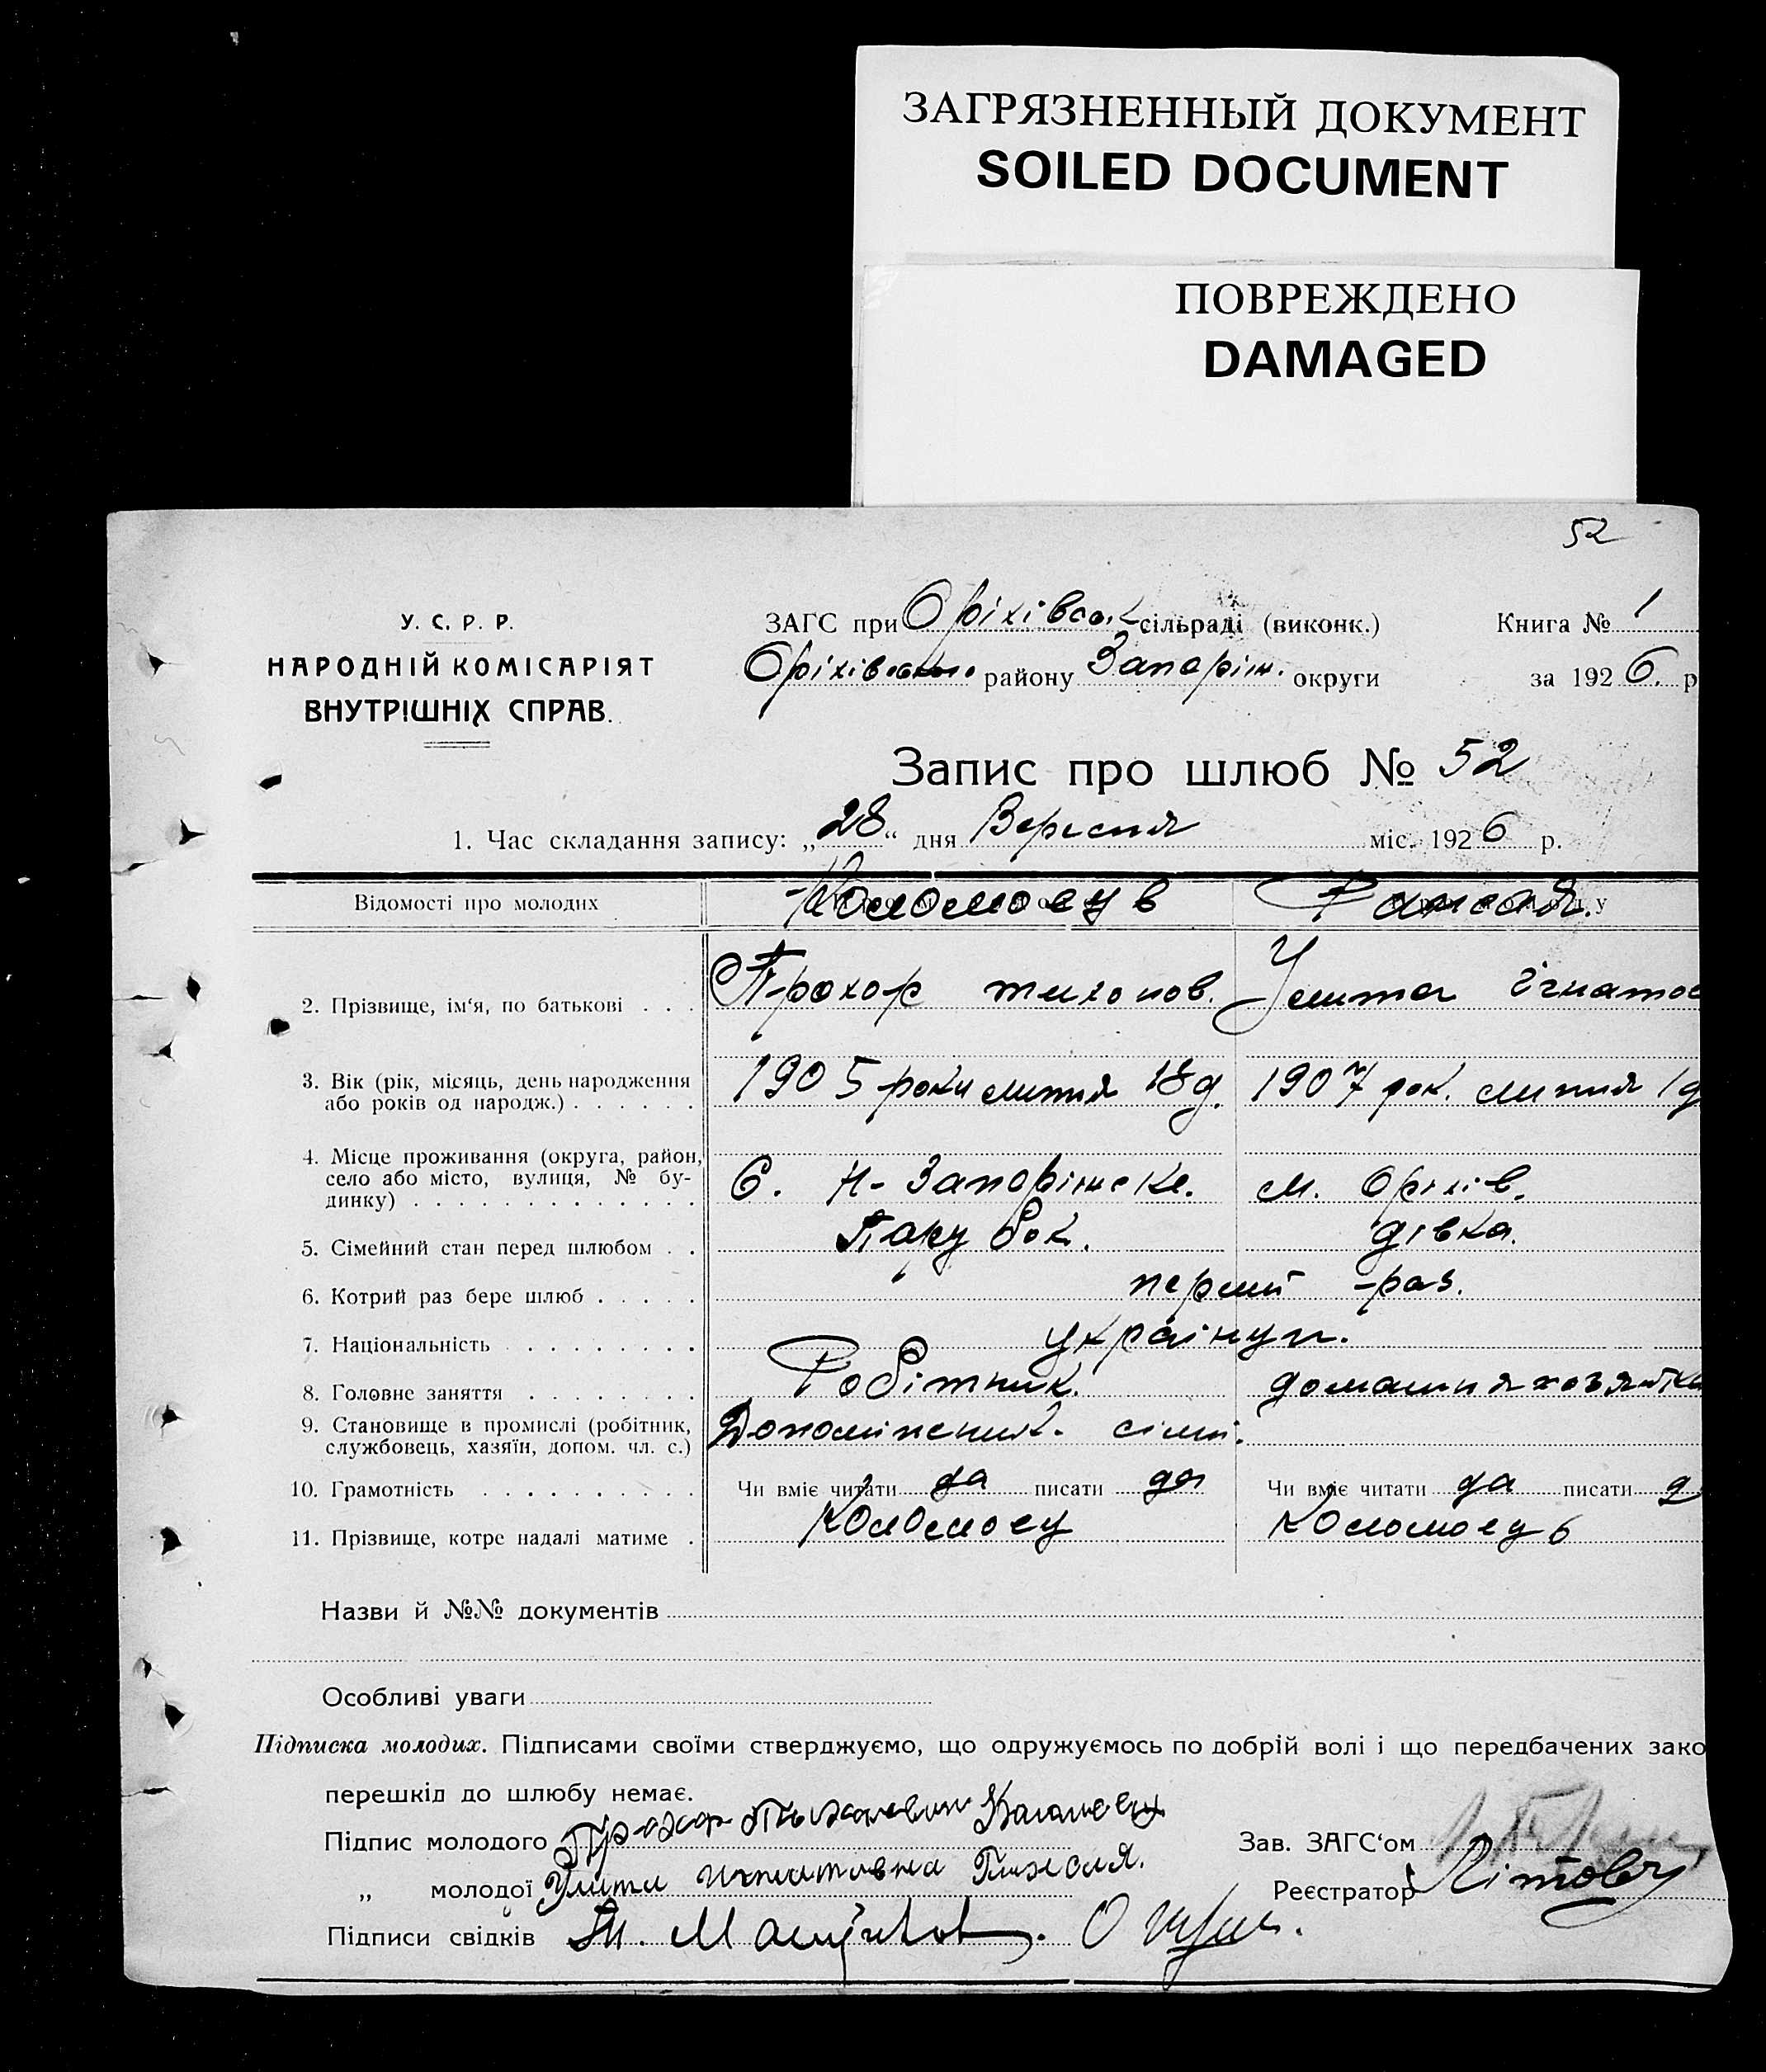 ЗАГРЯЗНЕННЫЙ ДОКУМЕНТ
SOILED DOCUMENT
ПОВРЕЖДЕНО
DAMAGED
52
У. С. Р. Р.
НАРОДНІЙ КОМІСАРІЯТ
ВНУТРІШНІХ СПРАВ.
ЗАГС при Оріхівськ. сільраді (виконк.)
Книга № 1
Оріхівського району Запоріж. округи
за 1926. р
Запис про шлюб № 52
1. Час складання запису: „28“ дня Вересня міс. 1926 р.
Відомості про молодих
Коломоєцв
2. Прізвище, ім‘я, по батькові . . . Прохор тихонов. Улита ігнатов
3. Вік (рік, місяць, день народження
або років од народж.) . . . . . . 1905 роки липня 18 д. 1907 рок. липня 1 д
4. Місце проживання (округа, район,
село або місто, вулиця, № бу-
динку) . . . . . . . . . . . . . С. Н-Запоріжске. м. Оріхів.
5. Сімейний стан перед шлюбом . . Парубок. дівка.
6. Котрий раз бере шлюб . . . . . перший раз.
7. Національність . . . . . . . . . українці.
8. Головне заняття . . . . . . . . Робітник. домашня хозяйка
9. Становище в промислі (робітник,
службовець, хазяїн, допом. чл. с.) сімі.
10. Грамотність . . . . . . . . . . Чи вміє читати да писати да Чи вміє читати да писати д
11. Прізвище, котре надалі матиме . Коломоєц Коломоєцв
Назви й №№ документів
Особливі уваги
Підписка молодих. Підписами своїми стверджуємо, що одружуємось по добрій волі і що передбачених зако
перешкід до шлюбу немає.
Підпис молодого Прохор Тихонович Коломоец
Зав. ЗАГС‘ом
„ молодої Улита Игнатовна
Реєстратор
Підписи свідків